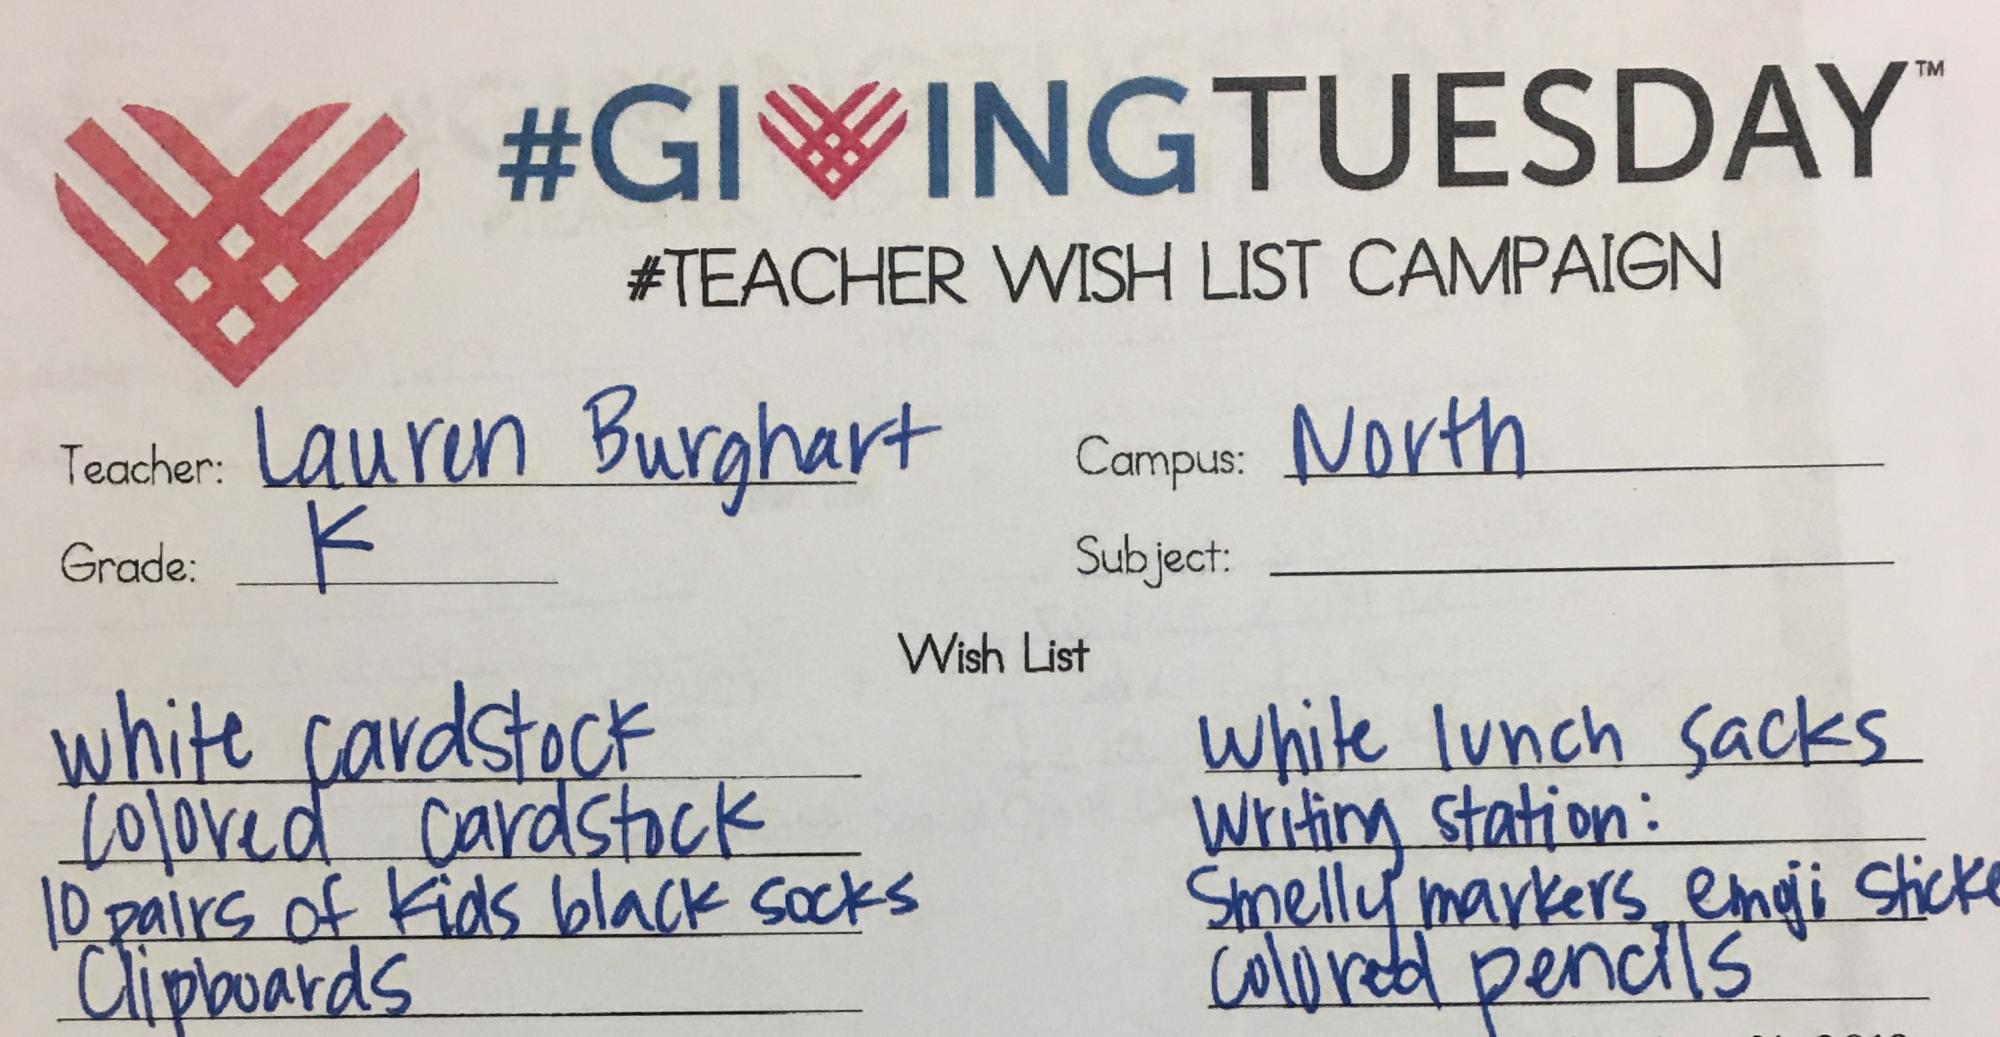 #GIVINGTUESDAY™
#TEACHER WISH LIST CAMPAIGN
Teacher: Lauren Burghart
Campus: North
Grade: K
Subject:
Wish List
white cardstock
colored cardstock
10 pairs of kids black socks
Clipboards
white lunch sacks
Writing station:
Smelly markers, emoji sticke
colored pencils